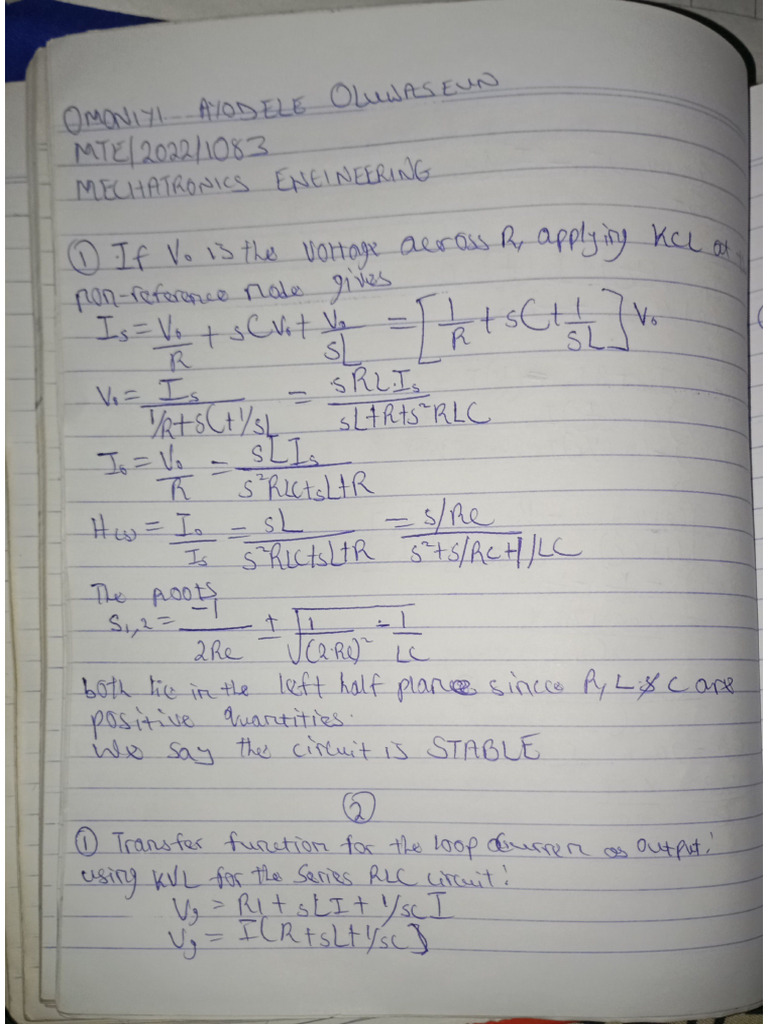 OMONIYI AYODELE OLUWASEUN
MTE/2022/1083
MECHATRONICS ENGINEERING
① If V₀ is the voltage across R, applying KCL at
non-reference node gives
Is = V₀/R + sCV₀ + V₀/sL = [1/R + sC + 1/sL] V₀
V₀ = Is / (1/R + sC + 1/sL) = sRL.Is / (sL+R+s²RLC)
I₀ = V₀/R = sLIs / (s²RLC+sL+R)
H(s) = I₀/Is = sL / (s²RLC+sL+R) = s/RC / (s²+s/RC+1/LC)
The roots
s₁,₂ = -1/2RC ± √(1/(2RC)² - 1/LC)
both lie in the left half plane since R, L & C are
positive quantities.
We say the circuit is STABLE
②
① Transfer function for the loop current as output:
using KVL for the series RLC circuit:
Vg = RI + sLI + 1/sC I
Vg = I(R+sL+1/sC)